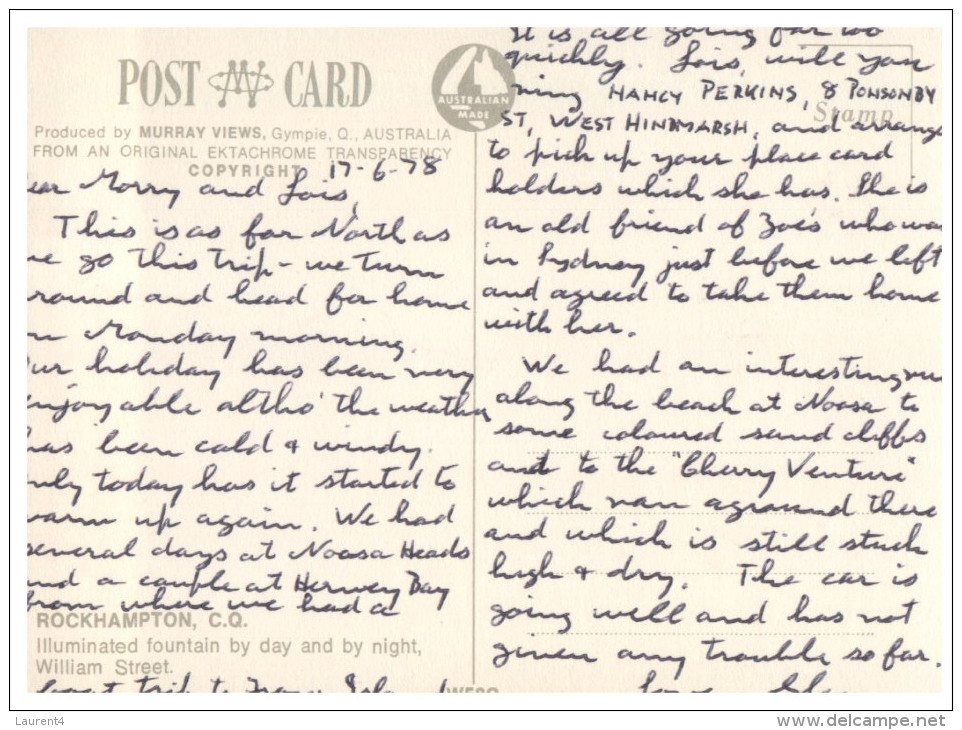 POST CARD
AUSTRALIAN MADE
Stamp
Produced by MURRAY VIEWS, Gympie, Q., AUSTRALIA
FROM AN ORIGINAL EKTACHROME TRANSPARENCY
COPYRIGHT
17-6-78
ear Morry and Lois,
This is as far North as
we go this trip - we turn
round and head for home
on Monday morning.
ur holiday has been very
njoyable altho' the weather
has been cold & windy.
nly today has it started to
warm up again. We had
several days at Noosa Heads
and a couple at Hervey Bay
from where we had a
ROCKHAMPTON, C.Q.
Illuminated fountain by day and by night,
William Street.
boat trip to
it is all going far too
quickly. Lois, will you
ring NANCY PERKINS, 8 PONSONBY
ST, WEST HINDMARSH, and arrange
to pick up your place card
holders which she has. She is
an old friend of Zoe's who wa
in Sydney just before we left
and agreed to take them home
with her.
We had an interesting run
along the beach at Noosa to
some coloured sand cliffs
and to the "Cherry Venture"
which ran aground there
and which is still stuck
high & dry. The car is
going well and has not
given any trouble so far.
Love
Laurent4
www.delcampe.net